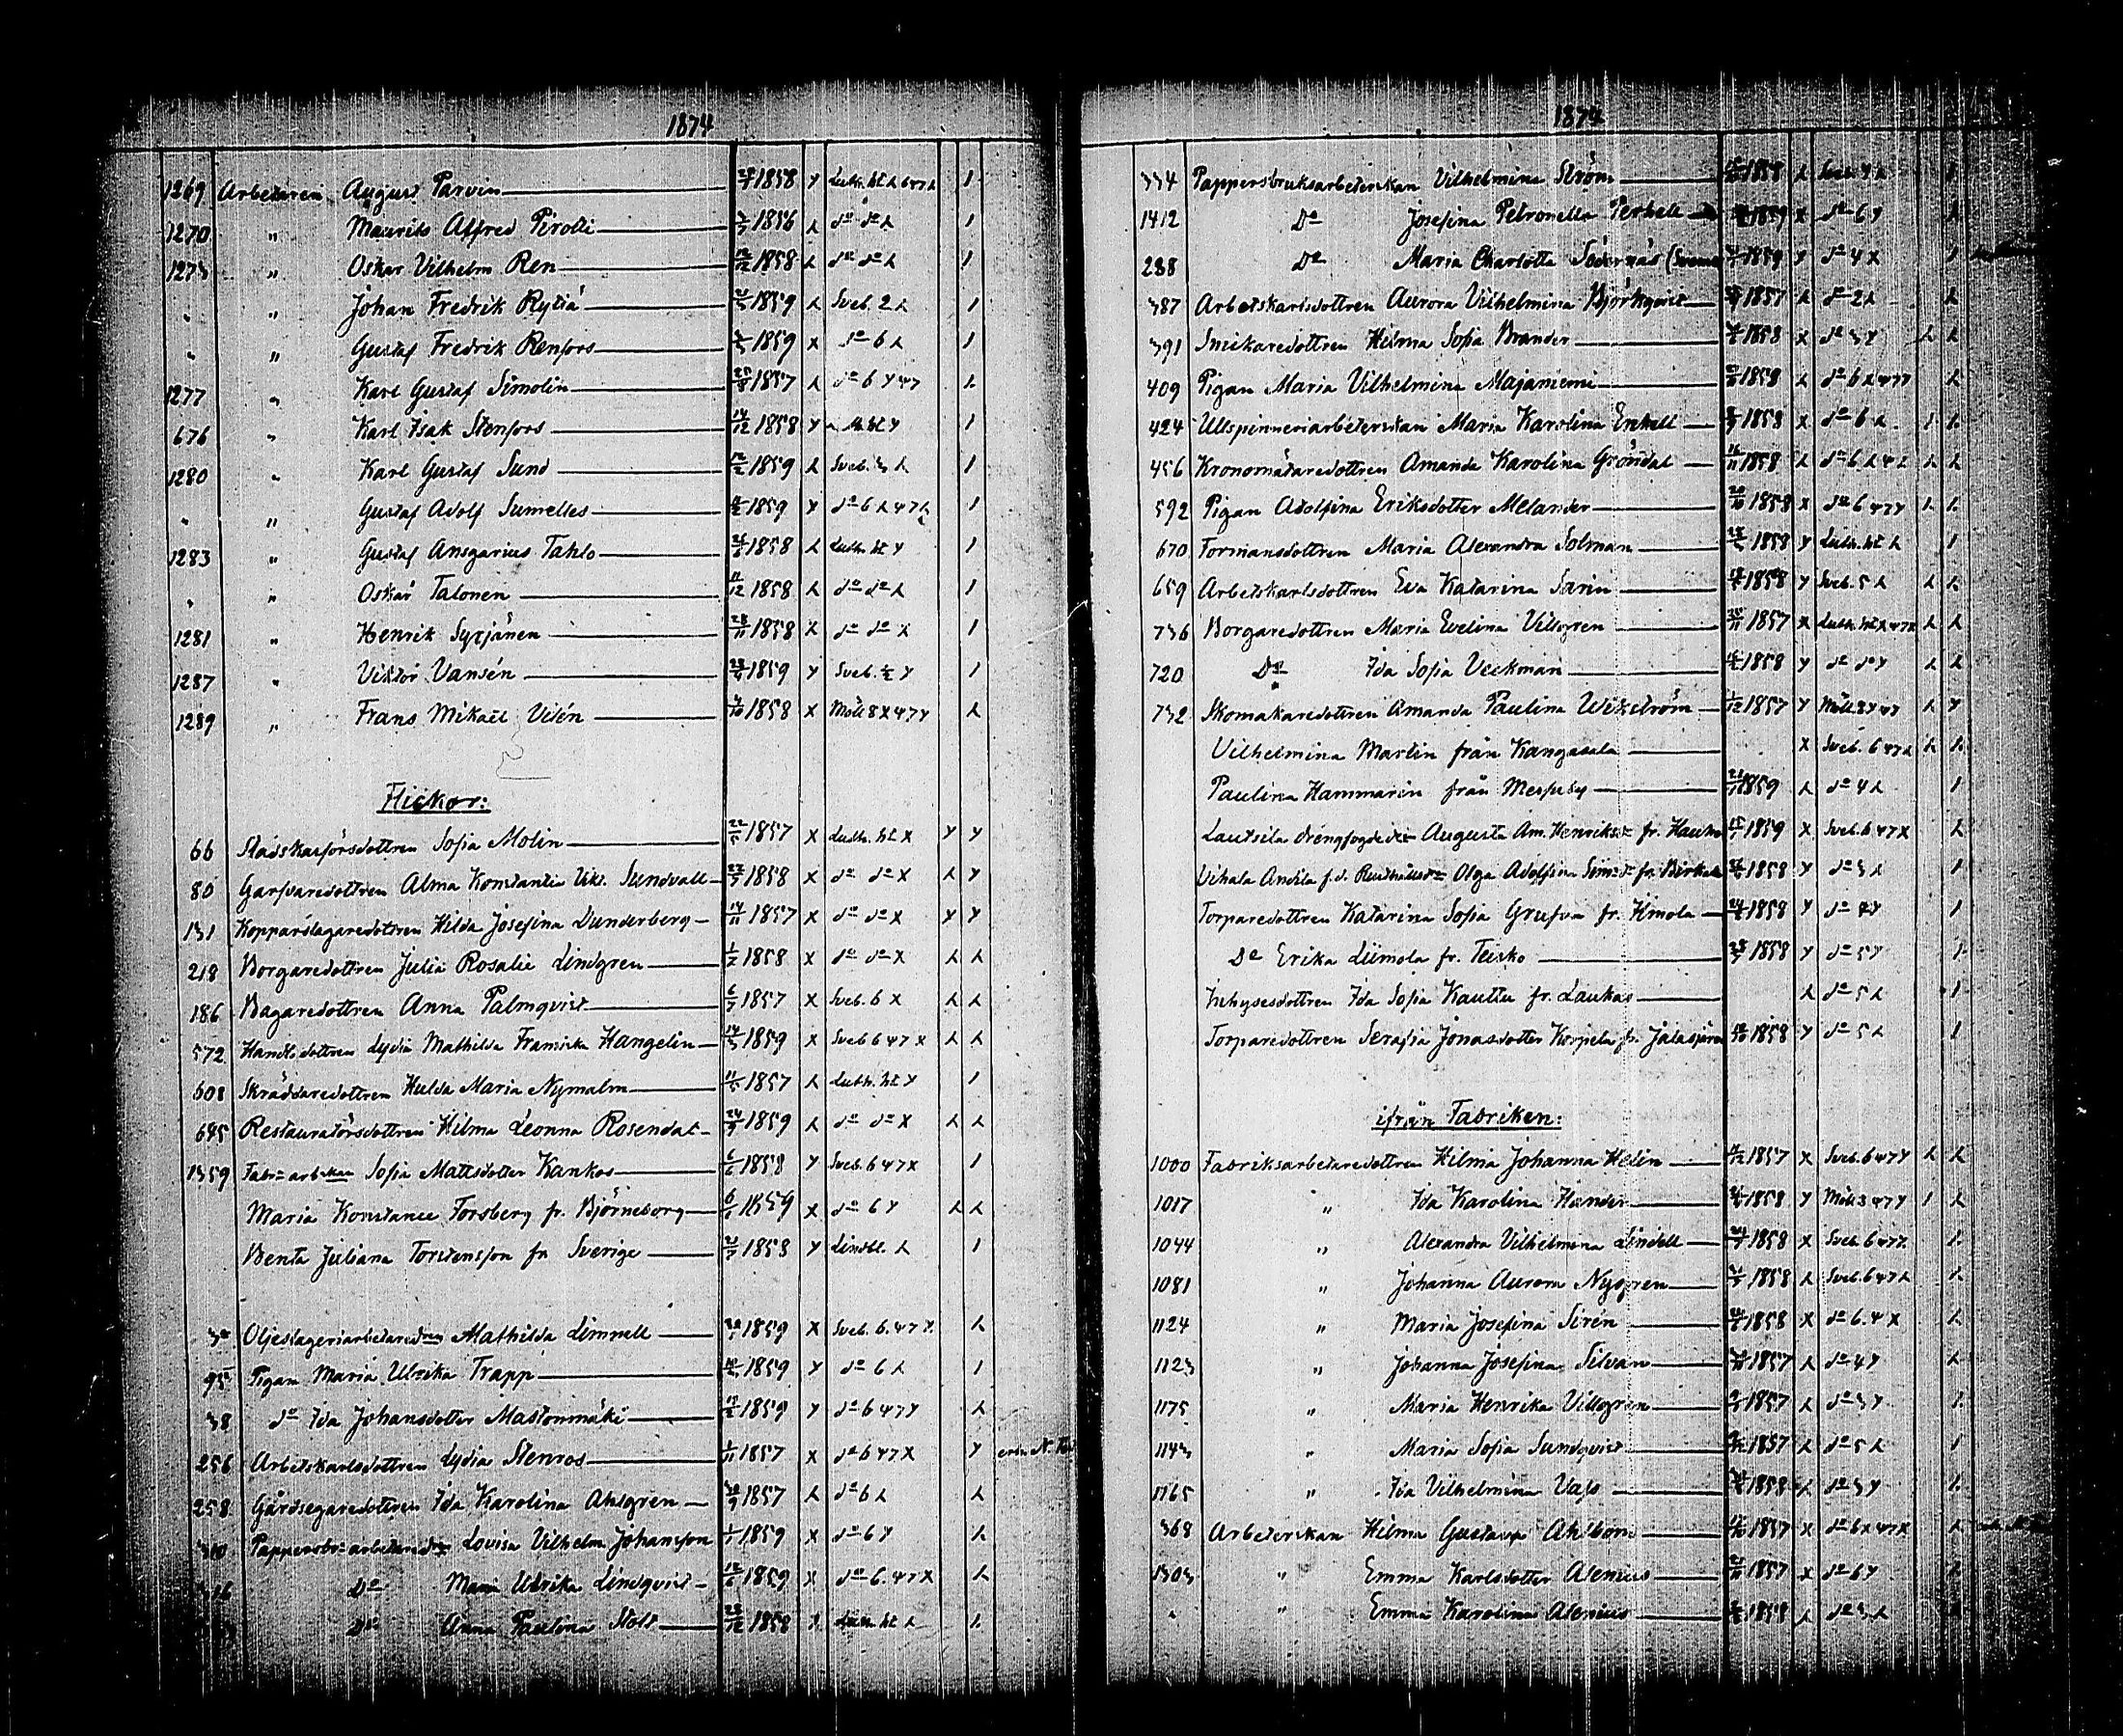 1874
1269 Arbetaren August Parvin 1858 Y Luth. ht λ 6 47 λ 1
1270 " Maurits Alfred Pirolli 1856 λ do do λ 1
1273 " Oskar Vilhelm Ren 12/12 1858 λ do do λ 1
" " Johan Fredrik Rytiä 1859 λ Sveb. 2 λ 1
" " Gustaf Fredrik Renfors 1859 X do 6 λ 1
1277 " Karl Gustaf Simolin 1857 λ do 6 Y 47 1
676 " Karl Isak Stenfors 14/12 1858 Y ht Y 1
1280 " Karl Gustaf Sund 12/2 1859 λ Sveb. 3 λ 1
" " Gustaf Adolf Sumelles 1859 Y do 6 λ 47 λ 1
1283 " Gustaf Ansgarius Tahlo 1858 λ Luth. ht Y 1
" " Oskar Talonen 11/12 1858 λ do do λ 1
1281 " Henrik Syrjänen 28/11 1858 X do do X 1
1287 " Viktor Vansén 1859 Y Sveb. Y 1
1289 " Frans Mikael Vilén 4/10 1858 X Möll 8 X 47 Y λ
Flickor:
66 Stadskassörsdottren Sofia Molin 22/5 1857 X Luth. ht X Y Y
80 Garfvaredottren Alma Konstantia Vikt. Sundvall 27/7 1858 X do do X λ Y
131 Kopparslagaredottren Hilda Josefina Dunderberg 14/11 1857 X do do X Y Y
218 Borgaredottren Julia Rosalie Lindgren 1/2 1858 X do do X λ λ
186 Bagaredottren Anna Palmqvist 6/7 1857 X Sveb. 6 X λ λ
572 Handl.dottren Lydia Mathilda Franciska Hangelin 14/3 1859 X Sveb 6 47 X λ λ
608 Skräddaredottren Hulda Maria Nymalm 11/5 1857 λ Luth. ht Y 1
645 Restauratörsdottren Hilma Leonna Rosendal 1859 λ do do X λ λ
1359 Fabr= arbskan Sofia Mattsdotter Kankas 1858 Y Sveb. 6 47 X 1
Maria Konstance Forsberg fr. Björneborg 1859 X do 6 Y λ λ
Benta Juliana Torstensson fr Sverige 1858 Y Lindbl. λ 1
Oljeslageriarbetaredren Mathilda Limnell 1859 X Sveb. 6. 47 X λ
95 Pigan Maria Ulrika Trapp 1859 Y do 6 λ 1
38 do Ida Johansdotter Mastonmäki 1859 Y do 6 47 Y λ
256 Arbetskarlsdottren Lydia Stenros 1/11 1857 X do 6 47 X Y
258 Gårdsegaredottren Ida Karolina Ahlgren 1857 λ do 6 λ λ
Pappersbr= arbetaredren Lovisa Vilhelm. Johansson 1859 X do 6 Y λ
Do Maria Ulrika Lindqvist 1859 X do 6. 47 X λ
Do Anna Paulina Stolt 28/12 1858 Luth. ht λ 1.
1874
334 Pappersbruksarbeterskan Vilhelmina Ström 1858 λ Sveb. 4 λ 1
1412 Do Josefina Petronella Perhell 1859 X do 6 Y λ
288 Do Maria Charlotta Södernäs 1859 Y do 4 X 1
387 Arbetskarlsdottren Aurora Vilhelmina Björkqvist 1857 λ do 2 λ λ
391 Snickaredottren Hilma Sofia Brander 1858 X do 3 Y λ λ
409 Pigan Maria Vilhelmina Majaniemi 1858 λ do 6 X 47 λ
424 Ullspinneriarbeterskan Maria Karolina Enkell 1858 X do 6 λ 1 1.
456 Kronomätaredottren Amanda Karolina Gröndal 1858 λ do 6 λ 4 λ λ
592 Pigan Adolfina Eriksdotter Melander 20/10 1858 X do 6 47 Y
670 Formansdottren Maria Alexandra Solman 1858 Y Luth. ht λ 1
659 Arbetskarlsdottren Eva Katarina Sarin 1858 Y Sveb. 5 λ λ λ
736 Borgaredottren Maria Evelina Villgren 1857 X Luth. ht λ 47 X λ λ
720 Do Ida Sofia Veckman 1858 Y do do Y λ λ
732 Skomakaredottren Amanda Paulina Wikström 1/12 1857 Y Möll 8 Y 47 λ Y
Vilhelmina Martin från Kangasala X Sveb. 6 47 λ
Paulina Hammarin från Messuby 1859 λ do 4 λ 1
Lautsila drängfogdedtr Augusta Am. Henriksdr fr. Hauho 1859 X Sveb. 6 47 X λ
Vihala Andila f.d. Rusthållsdr Olga Adolfina fr. Birkala 1858 Y do 3 λ 1
Torparedottren Katarina Sofia Grufva fr. Kimola 1858 Y do 4 Y 1
Do Erika Liimola fr. Teisko 1858 Y do 5 Y 1.
Inhysesdottren Ida Sofia Kauttu fr. Laukas λ do 5 λ 1
Torparedottren Serafia Jonasdotter Korpela fr. Jalasjärvi 1858 Y do 5 λ 1
ifrån Fabriken:
1000 Fabriksarbetaredottren Hilma Johanna Helin 1857 X Sveb. 6 47 Y λ λ
1017 " Ida Karolina Hander 1858 Y Möll 3 47 Y 1 λ
1044 " Alexandra Vilhelmina Lindell 1858 X Sveb. 6 47 1.
1081 " Johanna Aurora Nygren 1858 λ Sveb. 6 47 λ λ
1124 " Maria Josefina Sirén 1858 X do 6. 4 X λ
1123 " Johanna Josefina Silvan 1857 λ do 4 Y λ
1175 " Maria Henrika Villgren 1857 λ do 3 Y 1.
1143 " Maria Sofia Sundqvist 1857 λ do 5 λ 1
1165 " Ida Vilhelmina Vass 1858 λ do 3 Y 1.
368 Arbeterskan Hilma Gustava Ahlbom 1857 X do 6 X 47 X λ
1303 " Emma Karlsdotter Alenius 1857 X do 6 Y
" " Emma Karolina Alenius 1858 λ do 3 λ